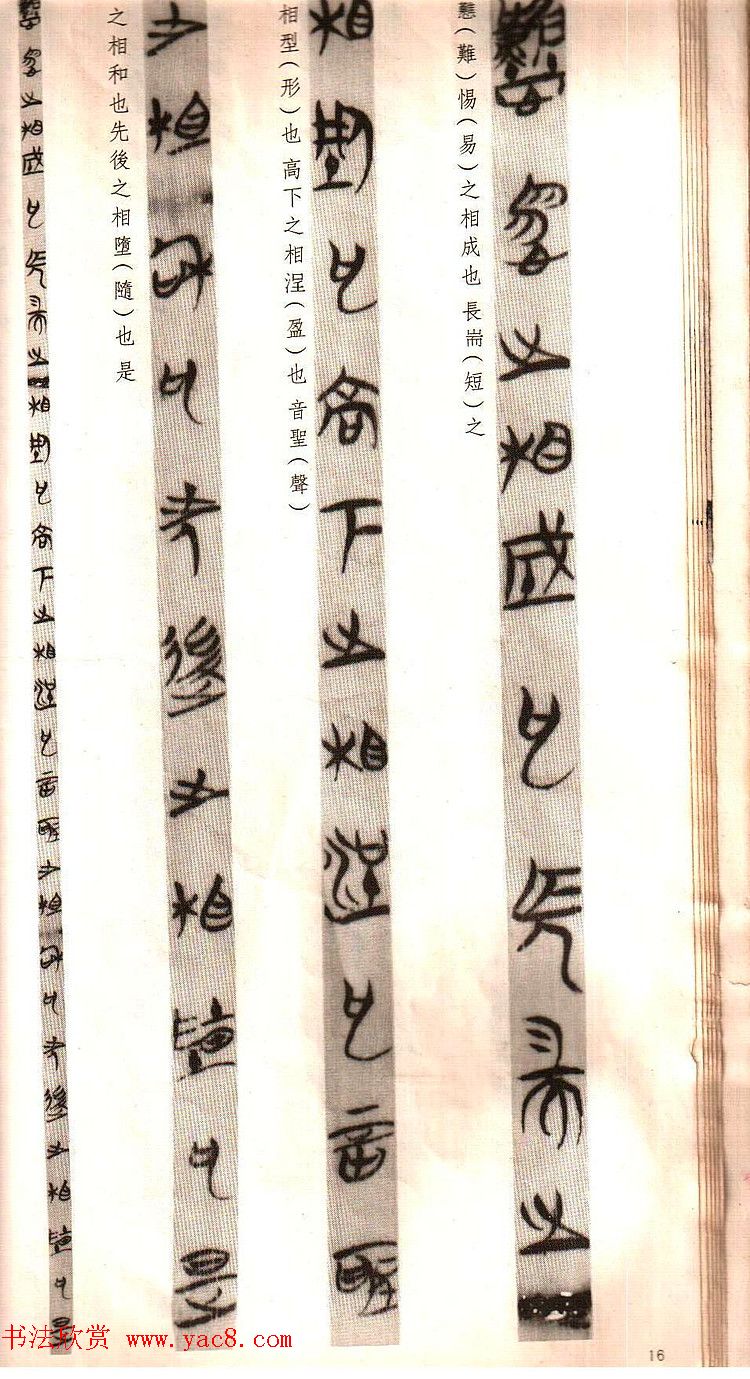 戁（難）惕（易）之相成也 長耑（短）之
相型（形）也 高下之相浧（盈）也 音聖（聲）
之相和也先後之相墮（隨）也 是
16
书法欣赏 www.yac8.com